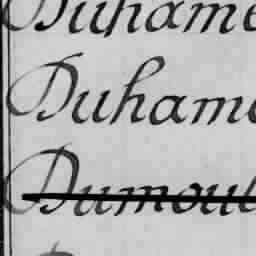 Duhame
Duhame
Dumoul